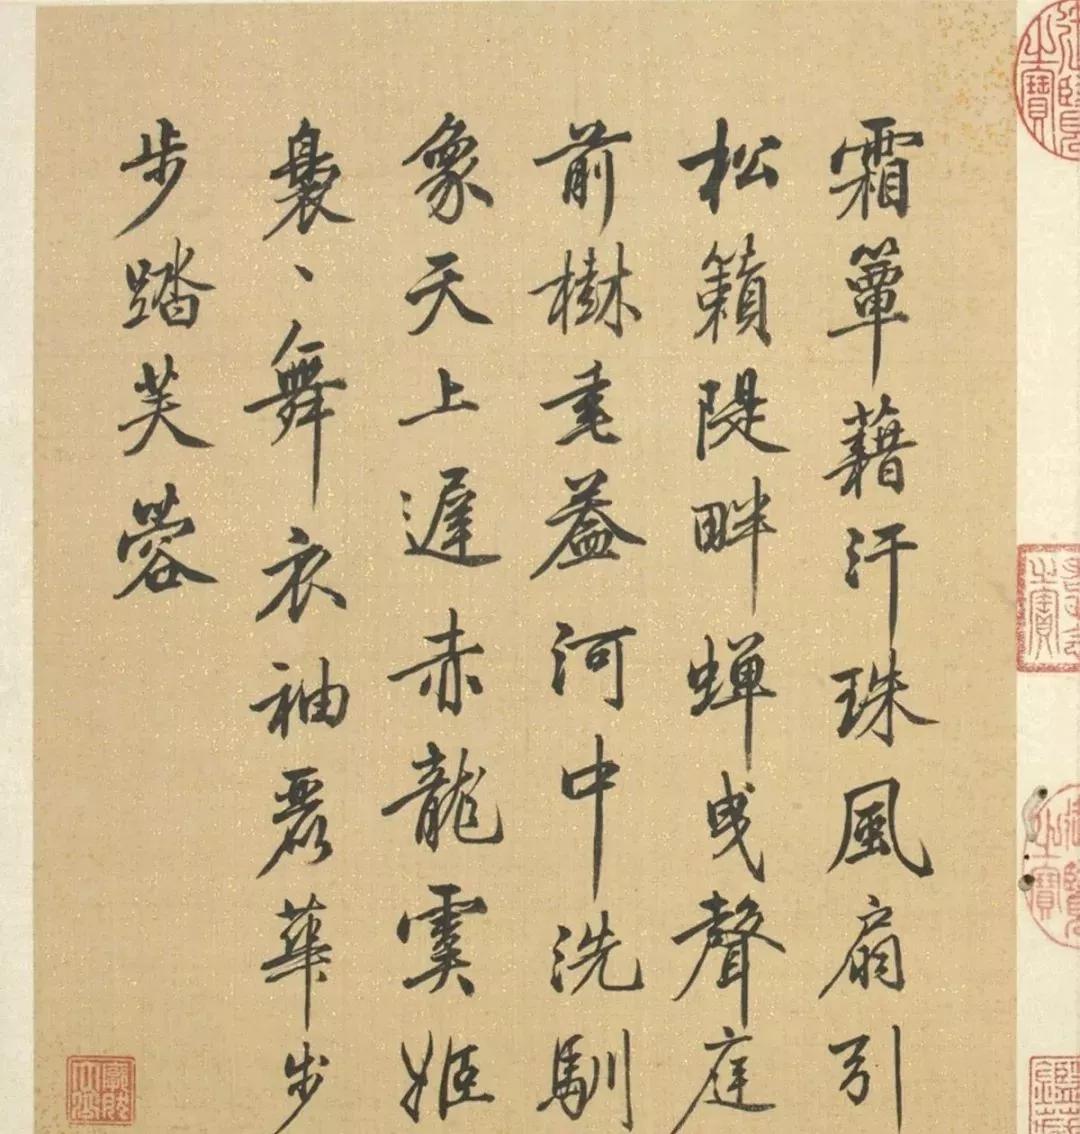 霜簟藉汗珠風扇引
松籟隄畔蟬曳聲庭
前樹垂蓋河中洗馴
象天上遲赤龍虞姬
裊、舞衣袖麗華步
步踏芙蓉